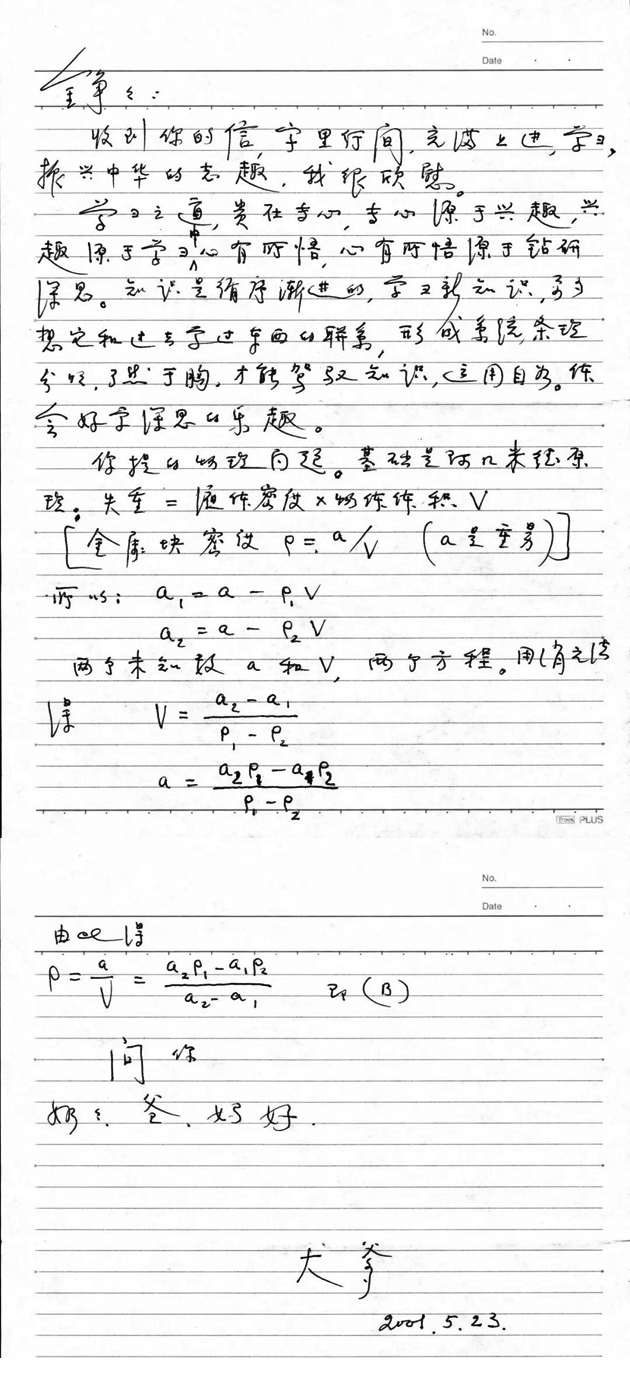 No.
Date
收到你的信,字里行间,充满上进,学习,
振兴中华的志趣,我很欣慰。
学习之道,贵在专心,专心源于兴趣,兴
趣源于学习中心有所悟,心有所悟源于钻研
深思。知识是循序渐进的,学习新知识,要多
想它和过去学过东西的联系,形成系统,条理
分明,了然于胸,才能驾驭知识,运用自如。体
会好学深思的乐趣。
你提的物理问题。基础是阿几米德原
理:失重=液体密度×物体体积V
[金属块密度 ρ=a/V (a是重量)]
所以: a₁=a-ρ₁V
a₂=a-ρ₂V
两个未知数a和V,两个方程。用消元法
得 V=(a₂-a₁)/(ρ₁-ρ₂)
a=(a₂ρ₁-a₁ρ₂)/(ρ₁-ρ₂)
PLUS
No.
Date
由此得
ρ=a/V=(a₂ρ₁-a₁ρ₂)/(a₂-a₁) 即(B)
问你
奶奶、爸、妈好.
大爷
2001.5.23.